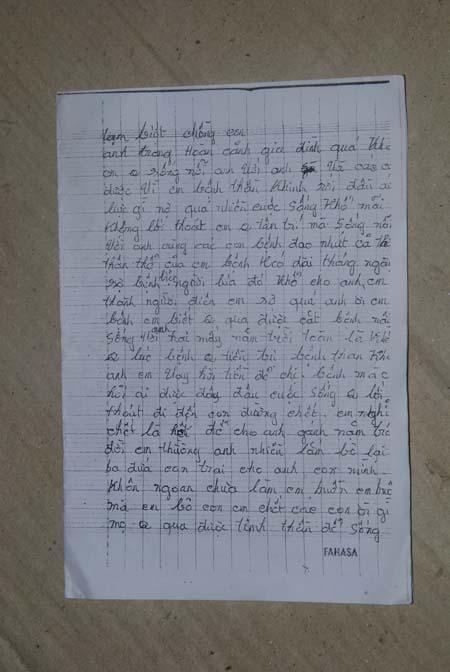 tạm biệt chồng con
anh trong hoàn cảnh gia đình quá khó
em sống nổi anh với anh và các
được vì em bệnh thần kinh rồi đầu ai
lực gì nó quá nhiều cuộc sống khổ mãi
không lối thoát em tâm trí mà sống nổi
với anh cùng các con bệnh đao nhứt cả
thân thể của em bệnh kéo dài tháng ngày
sợ bệnh người lúa đó khổ cho anh em
thành người điên em sợ quá anh ơi em
bệnh em biết qua được cắt bệnh nổi
sống với anh hai mấy năm trời toàn là khổ
lúc bệnh tiền trị bệnh than khi
anh em vay hỏi tiền để chi bệnh mắc
hỏi ai được đây đâu cuộc sống lối
thoát đi đến con đường chết. em nghĩ
chết là hết để cho anh gánh nằm
đời em thương anh nhiều lắm bỏ lại
ba đứa con trai cho anh con mình
khôn ngoan chưa lắm em buồn em
mà em bỏ con em chết các con ơi gì
mẹ qua được tinh thần để sống
FAHASA